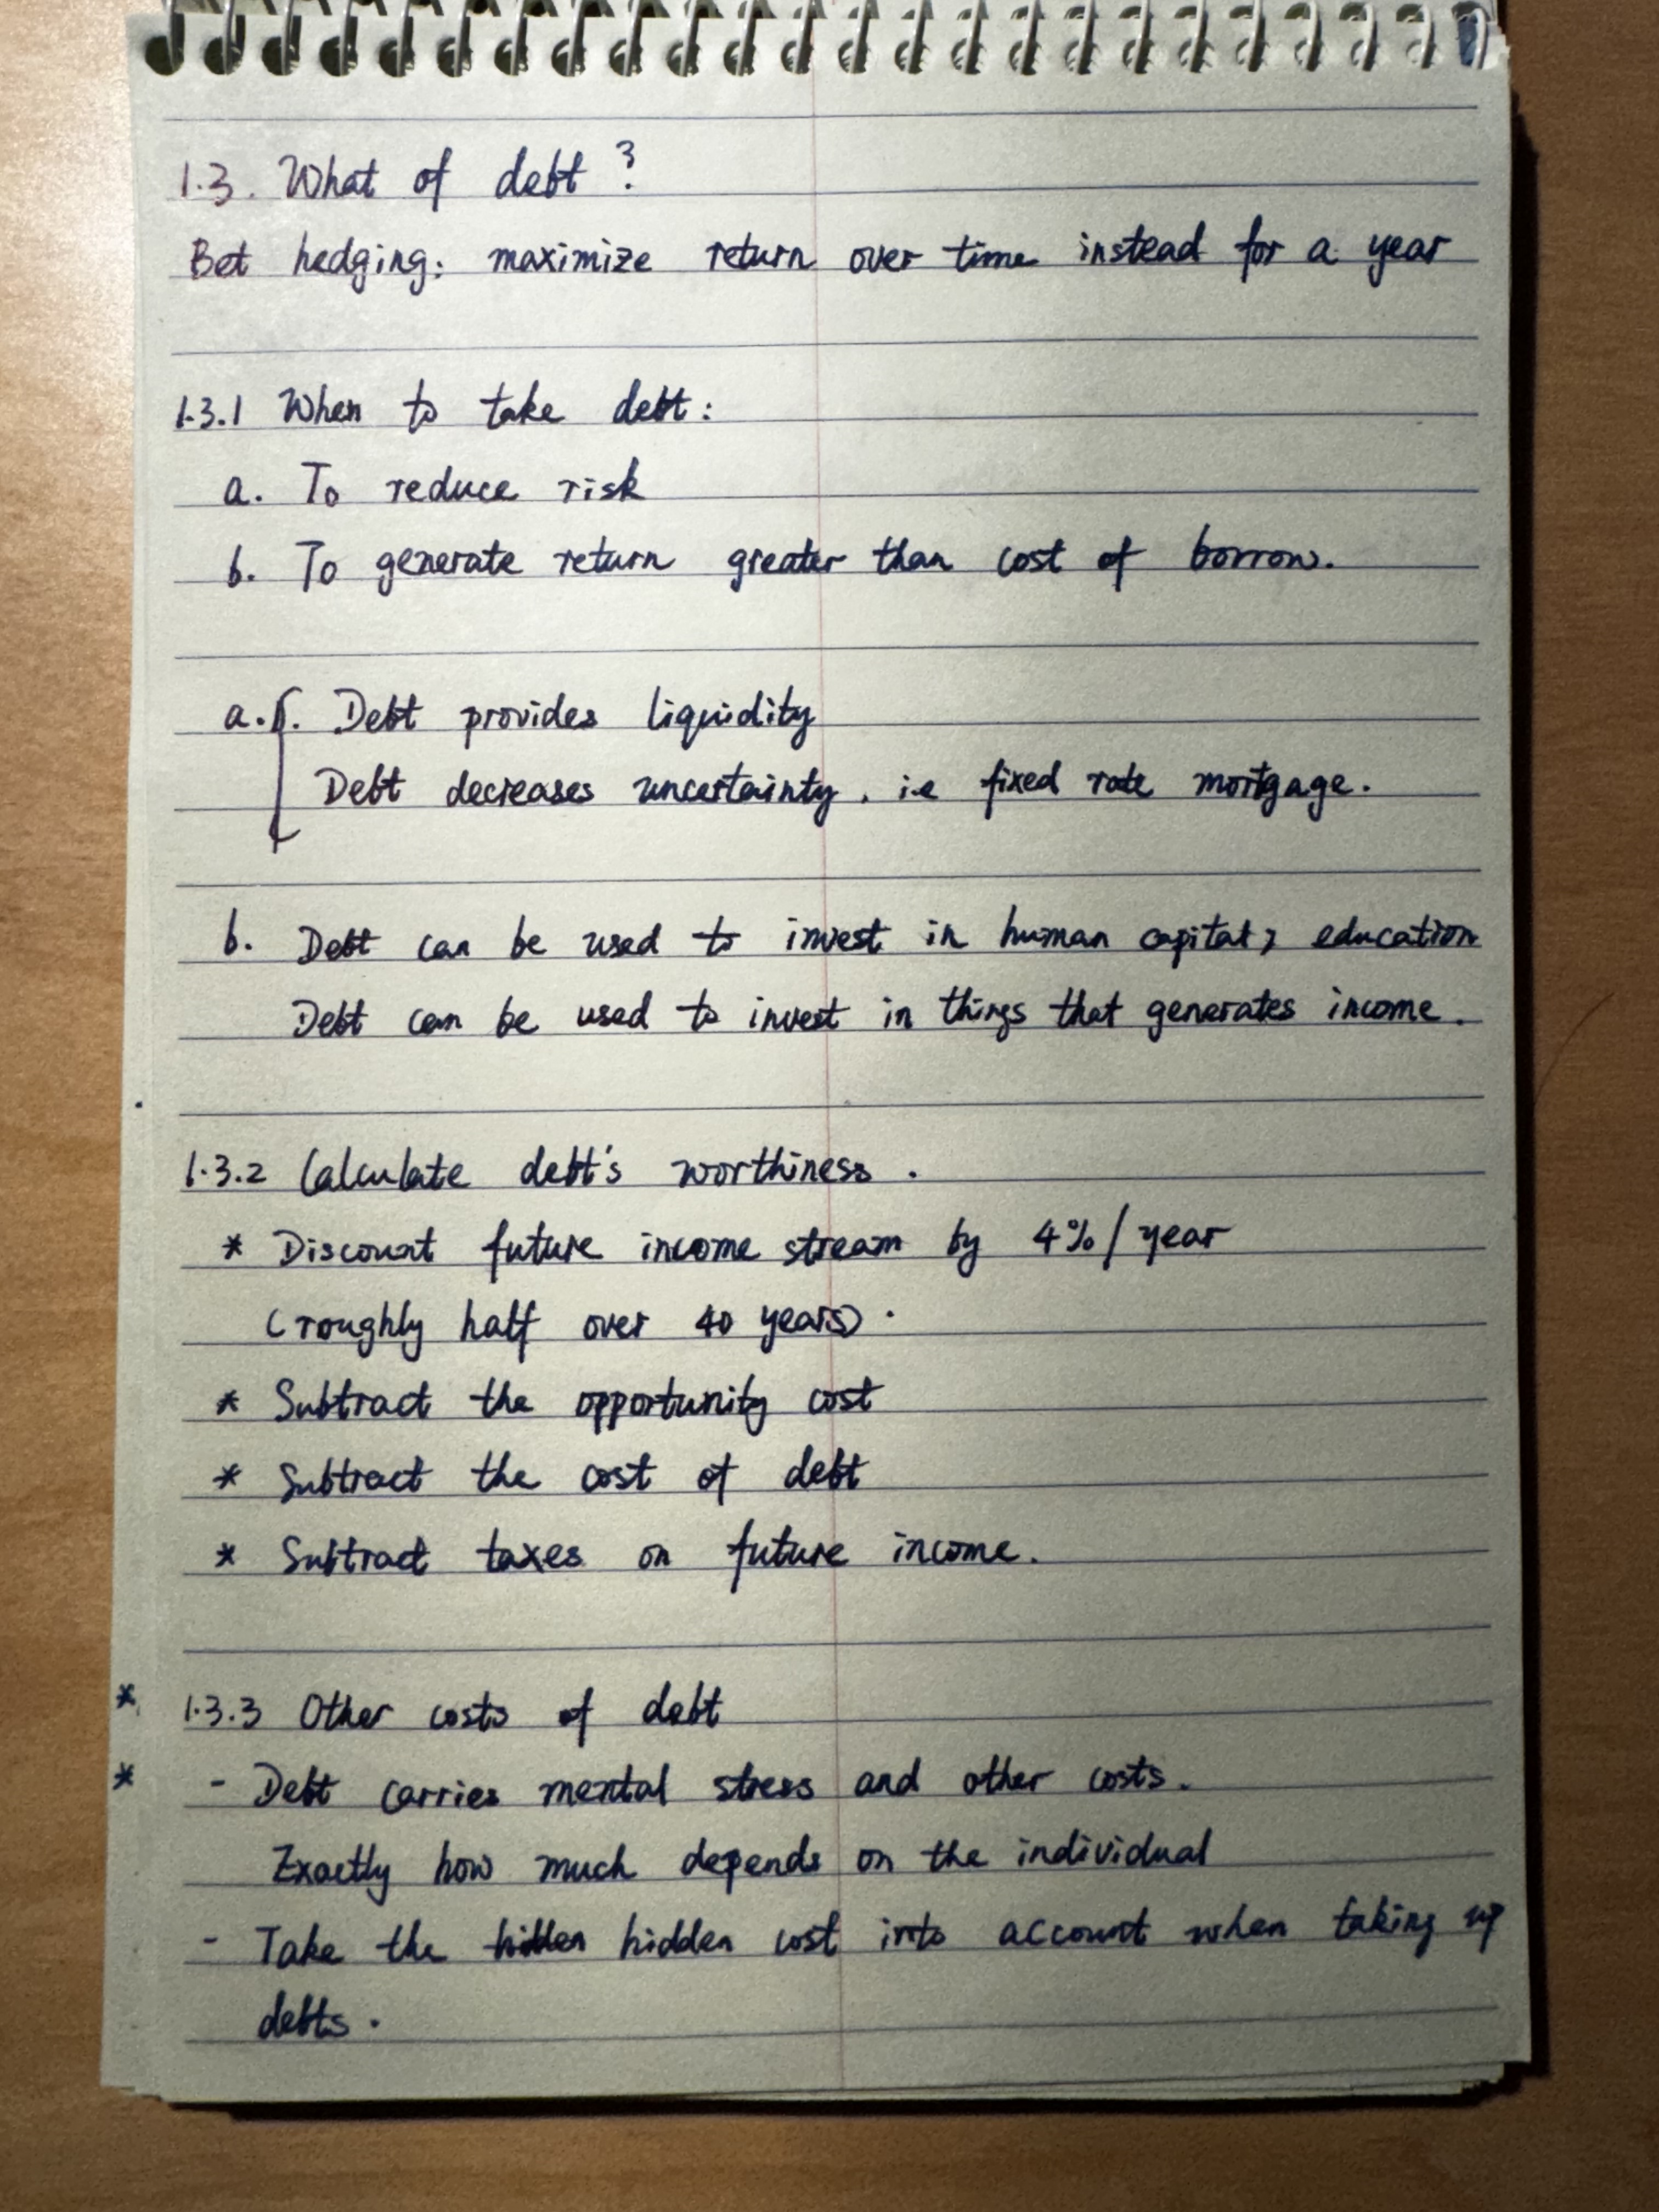 1.3. What of debt?
Bet hedging: maximize return over time instead for a year
1.3.1 When to take debt:
a. To reduce risk
b. To generate return greater than cost of borrow.
a. Debt provides liquidity
Debt decreases uncertainty. i.e fixed rate mortgage.
b. Debt can be used to invest in human capital, education
Debt can be used to invest in things that generates income.
1.3.2 Calculate debt's worthiness.
* Discount future income stream by 4%/year
(roughly half over 40 years).
* Subtract the opportunity cost
* Subtract the cost of debt
* Subtract taxes on future income.
* 1.3.3 Other costs of debt
* - Debt carries mental stress and other costs.
Exactly how much depends on the individual
- Take the hidden cost into account when taking up
debts.